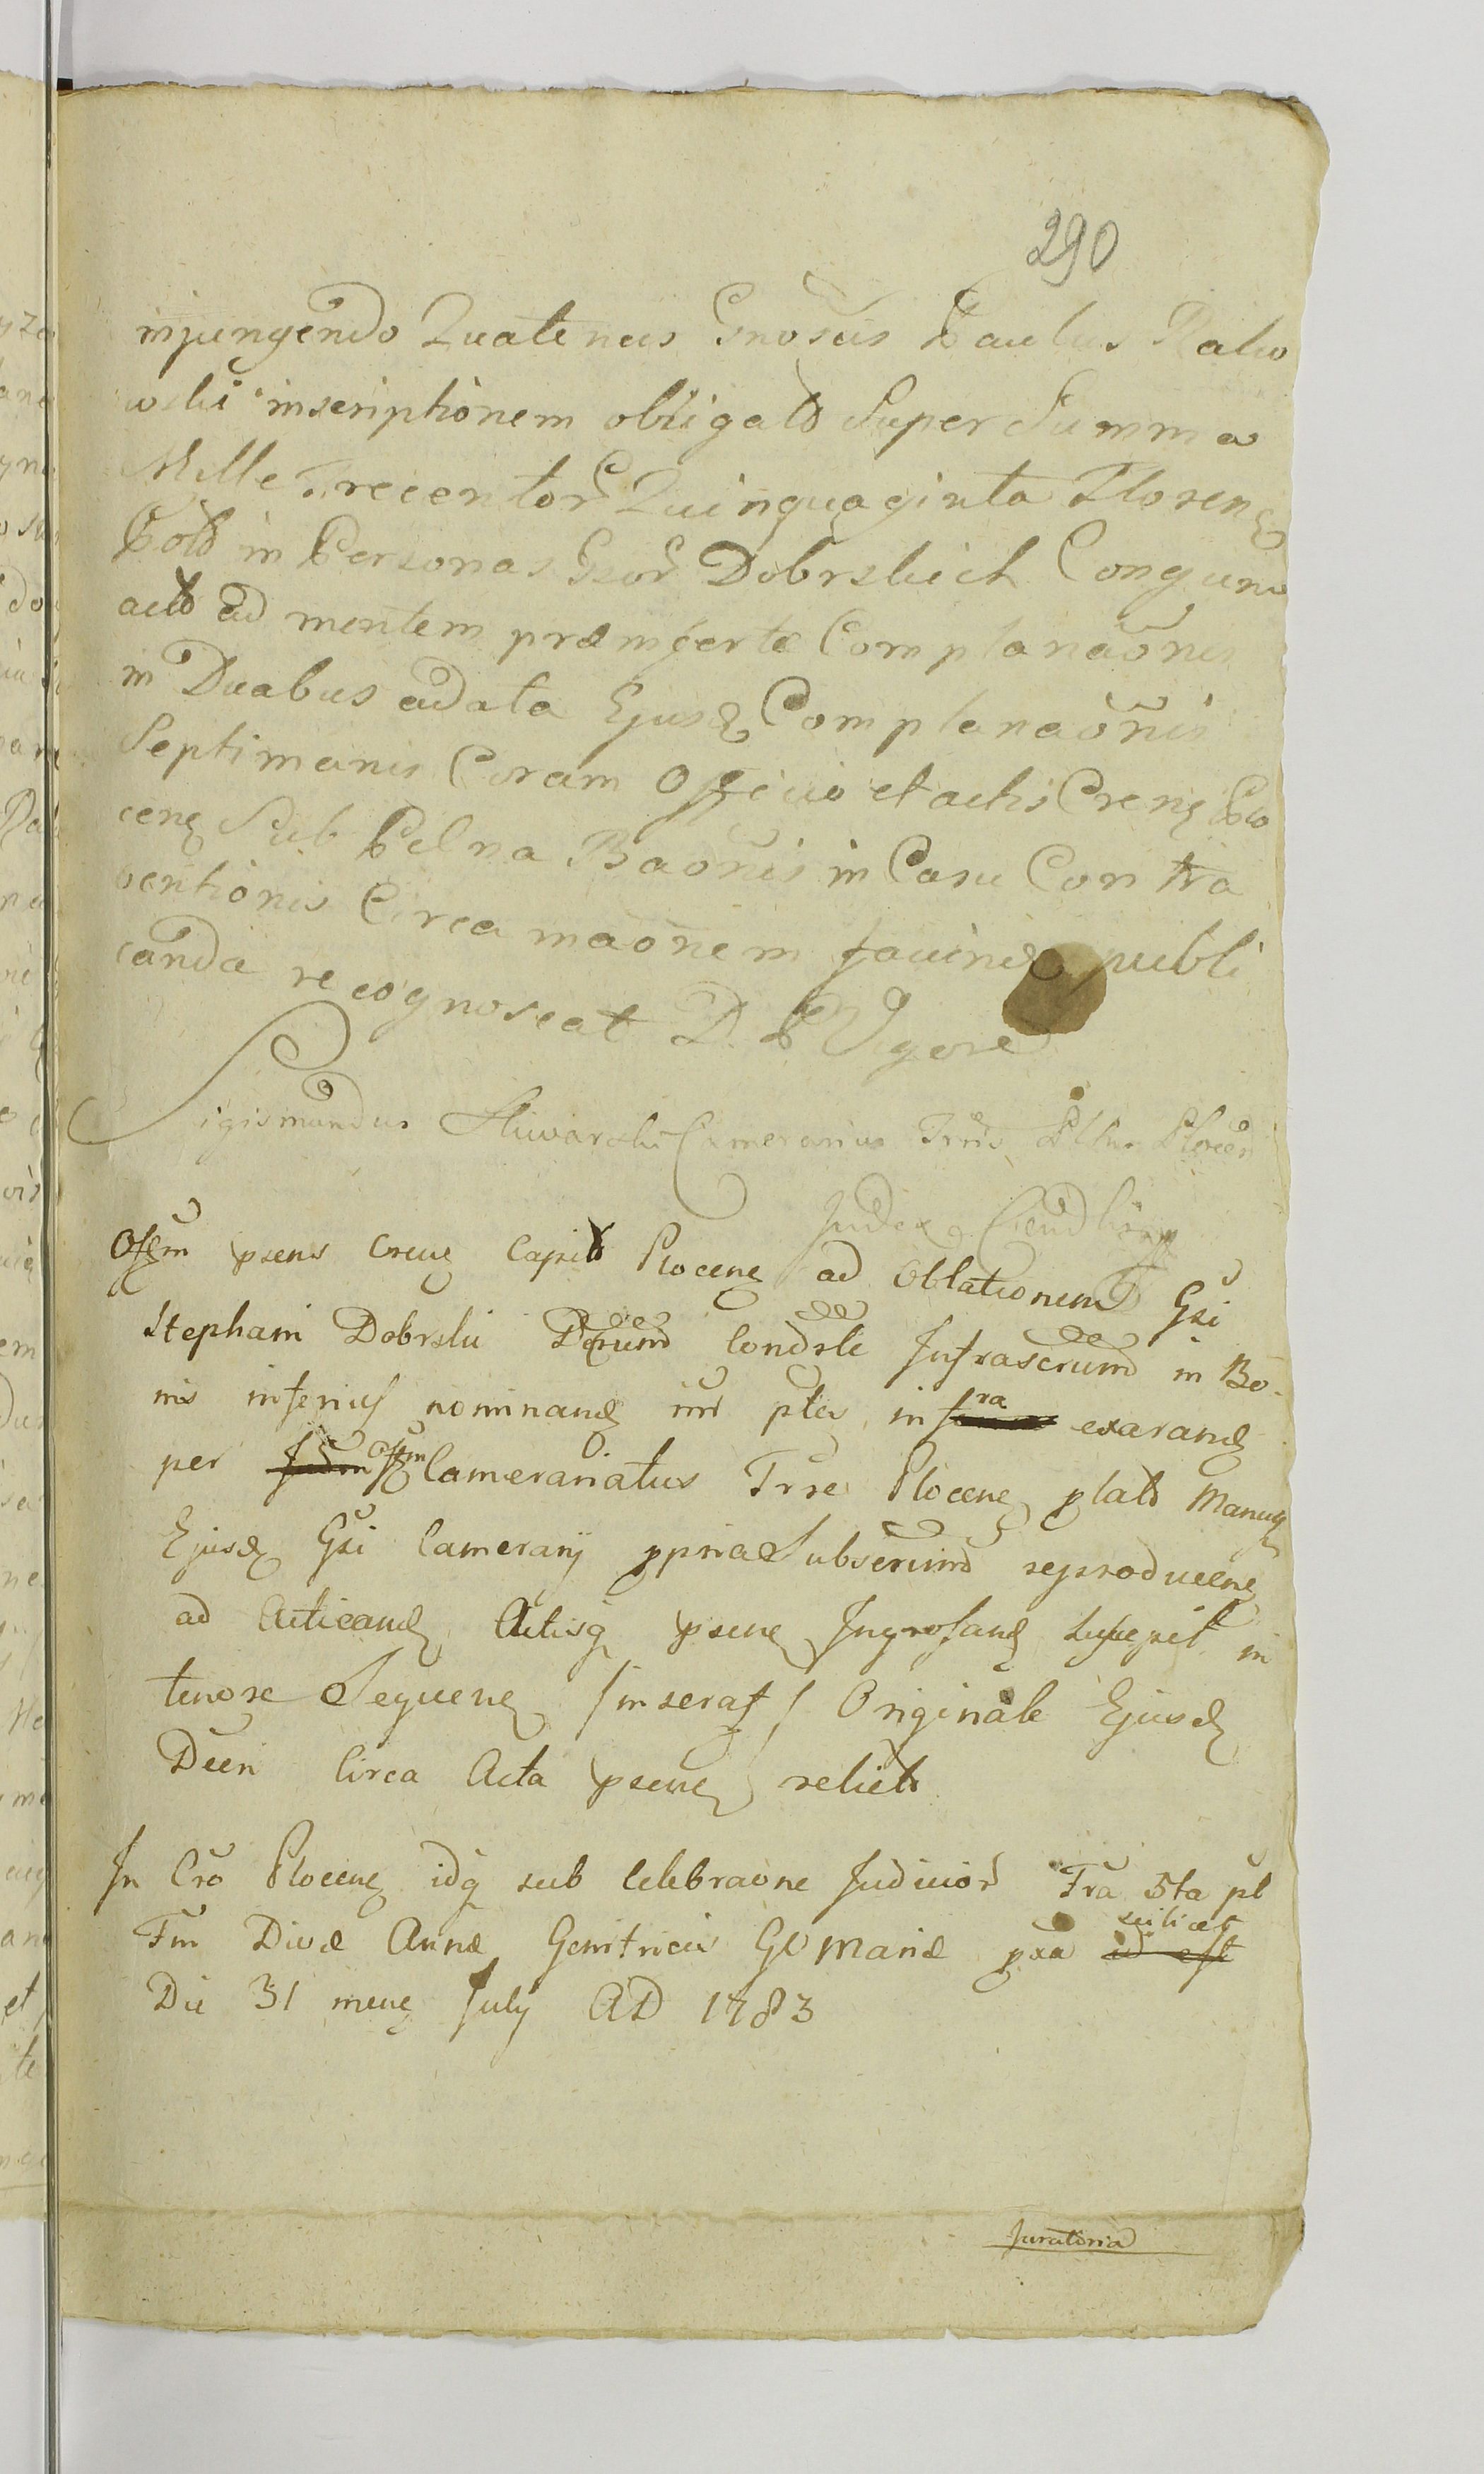 290
injungendo Quatenus Gnosus Paulus Rako
wski inscriptionem obligato Super Summa
Mille Trecentor Quinquaginta Floren
Pol in Personas Gsor Dobrskich Congum
acto ad mentem præinserta Complanaonis
in Duabus a data Ejusd Complanaonis
Septimanis Coram Officio et actis Cren Plo
cen Sub Pelna Baonis in Casu Contra
ventionis Circa maonem publi
canda recognoscat D. P Vigore
Sigismundus Camerarius Trris Plocen
Judex
Offm psens Crene Capit Plocen ad Oblationem Gsi
Stephani Dobrski Dcrum Condsk Infrascrum in Bo-
nis inferius nominand ptes infra exarand
per Judm Offm Camerariatus Trre Plocen plato Manu
Ejusd Gsi Camerarij ppria Subscrium reproducen
ad Acticand Actisq psene Ingrosand Suscepit in
tenore Sequene / inserat / Originale Ejusd
Dcen Circa Acta psene relicto
In Cro Plocen idq sub Celebraone Judicior Fra 5ta pt
Fm Divæ Annæ Genitricis GV Mariæ pxa id est scilicet
Die 31 mens July AD 1783
Juratoria